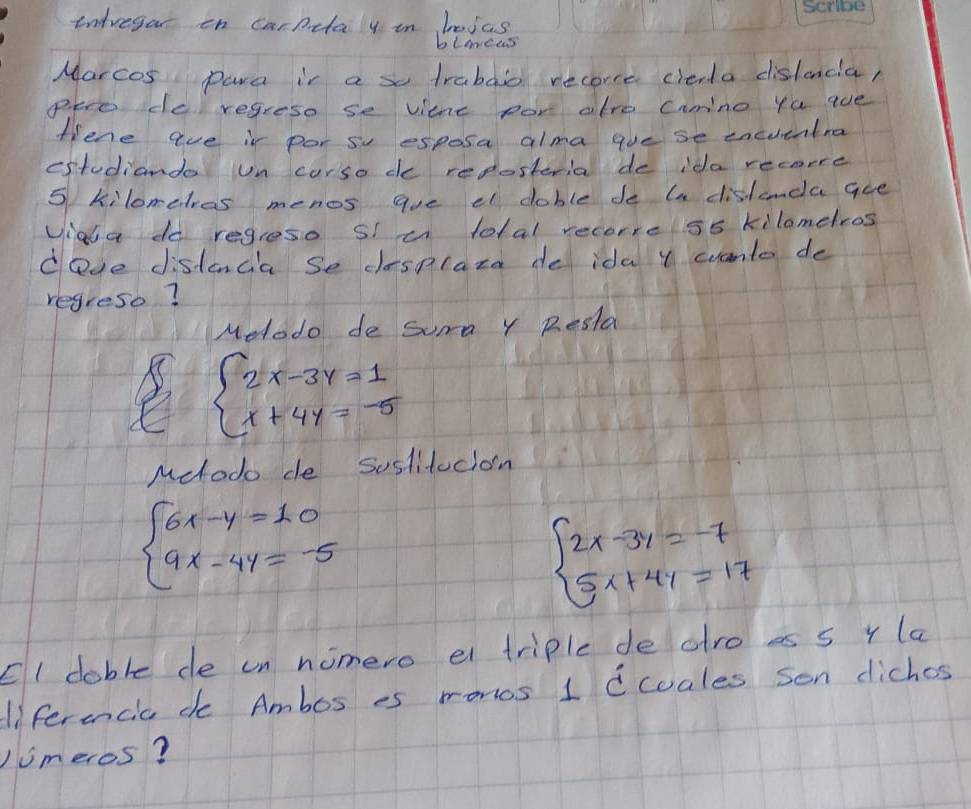 Scribe
entregar en carpeta y en hojas
blancas
Marcos para ir a su trabajo recorre cierta distancia,
pero de regreso se viene por otro camino ya que
tiene que ir por su esposa alma que se encuentra
estudiando un curso de reposteria de ida recorre
5 kilometros menos que el doble de la distancia que
viaja de regreso si en total recorre 55 kilometros
¿Que distancia se desplaza de ida y cuanto de
regreso?
Metodo de Suma y Resta
{2x-3y=1
{x+4y=-5
Metodo de Sustitución
{6x-y=10
{9x-4y=-5
{2x-3y=-7
{5x+4y=17
El doble de un número el triple de otro es 5 y la
diferencia de Ambos es menos 1 ¿cuales son dichos
números?